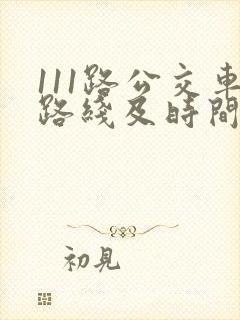 111路公交車
路綫及時間
初見